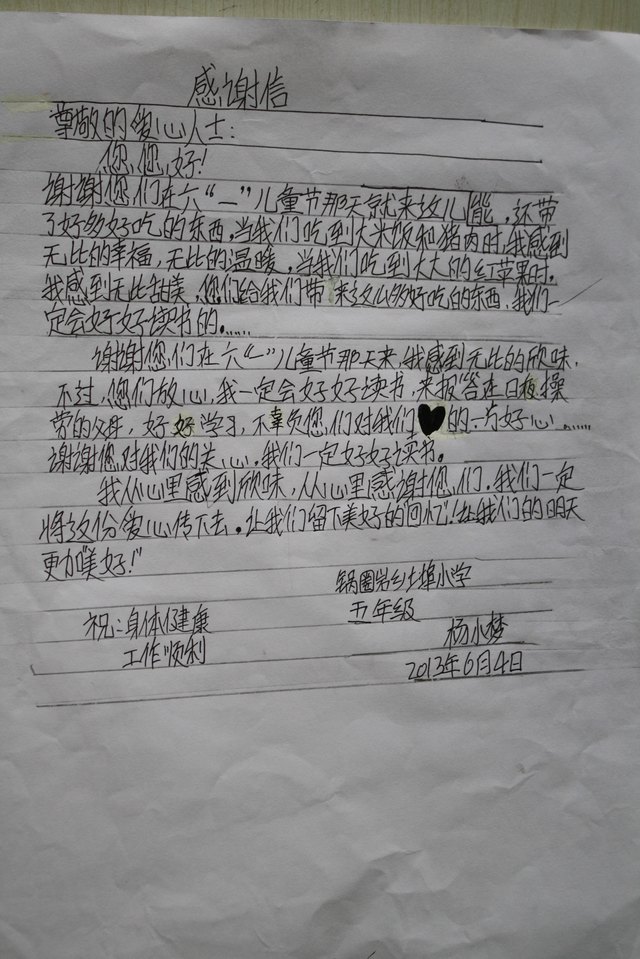 感谢信
尊敬的爱心人士:
您,您,好!
谢谢您,们在六“一”儿童节那天就来这儿能,还带
了好多好吃的东西,当我们吃到大米饭和猪肉时,我感到
无比的幸福,无比的温暖,当我们吃到大大的红苹果时。
我感到无比甜美,您们给我们带来这么多好吃的东西,我们一
定会好好读书的。……
谢谢您,们在六“一”儿童节那天来,我感到无比的欣味,
不过,您们放心,我一定会好好读书,来报答连日夜操
劳的父母,好好学习,不辜负您,们对我们♥的一片好心。……
谢谢您对我们的关心,我们一定好好读书。
我从心里感到欣味,从心里感谢您,们,我们一定
将这份爱心传下去。让我们留下美好的回忆“让我们的明天
更加美好!”
锅圈岩乡土埠小学
祝:身体健康 五年级
工作顺利 杨小梦
2013年6月4日